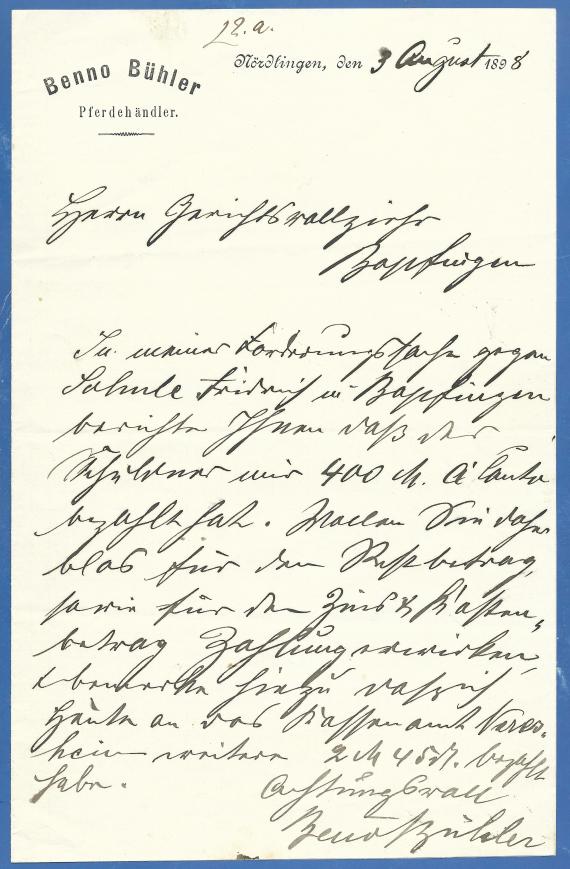 12.a.
Benno Bühler
Pferdehändler.
Nördlingen, den 3 August 1898
Herrn Gerichtsvollzieher
Bopfingen
In meiner Forderungssache gegen
Fridrich in Bopfingen
berichte Ihnen daß der
Schuldner mir 400 M. à Conto
bezahlt hat. Wollen Sie daher
blos für den Restbetrag,
sowie für den Zins & Kosten-
betrag Zahlung erwirken,
& bemerke hiezu daß ich
heute an das Kassenamt Neres-
heim weitere 2 M 45 bezahlt
habe.
Achtungsvoll
Benno Bühler